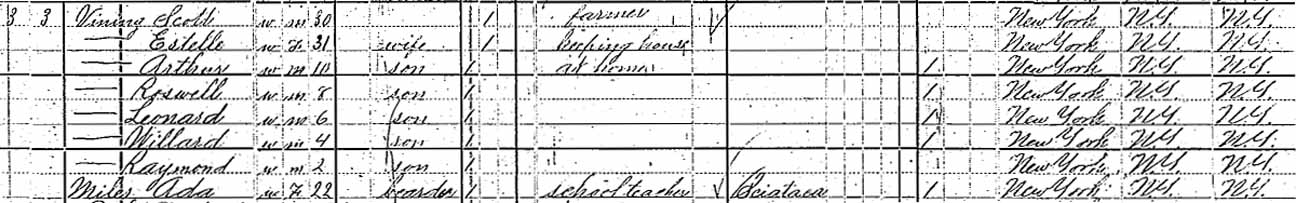 3 3 Vining Scott w m 30 1 farmer New York N.Y. N.Y.
— Estelle w F 31 wife 1 keeping house New York N.Y. N.Y.
— Arthur w m 10 son 1 at home 1 New York N.Y. N.Y.
— Roswell w m 8 son 1 1 New York N.Y. N.Y.
— Leonard w m 6 son 1 1 New York N.Y. N.Y.
— Willard w m 4 son 1 1 New York N.Y. N.Y.
— Raymond w m 2 son 1 New York N.Y. N.Y.
Miles Ada w F 22 boarder 1 school teacher Sciatica 1 New York N.Y. N.Y.